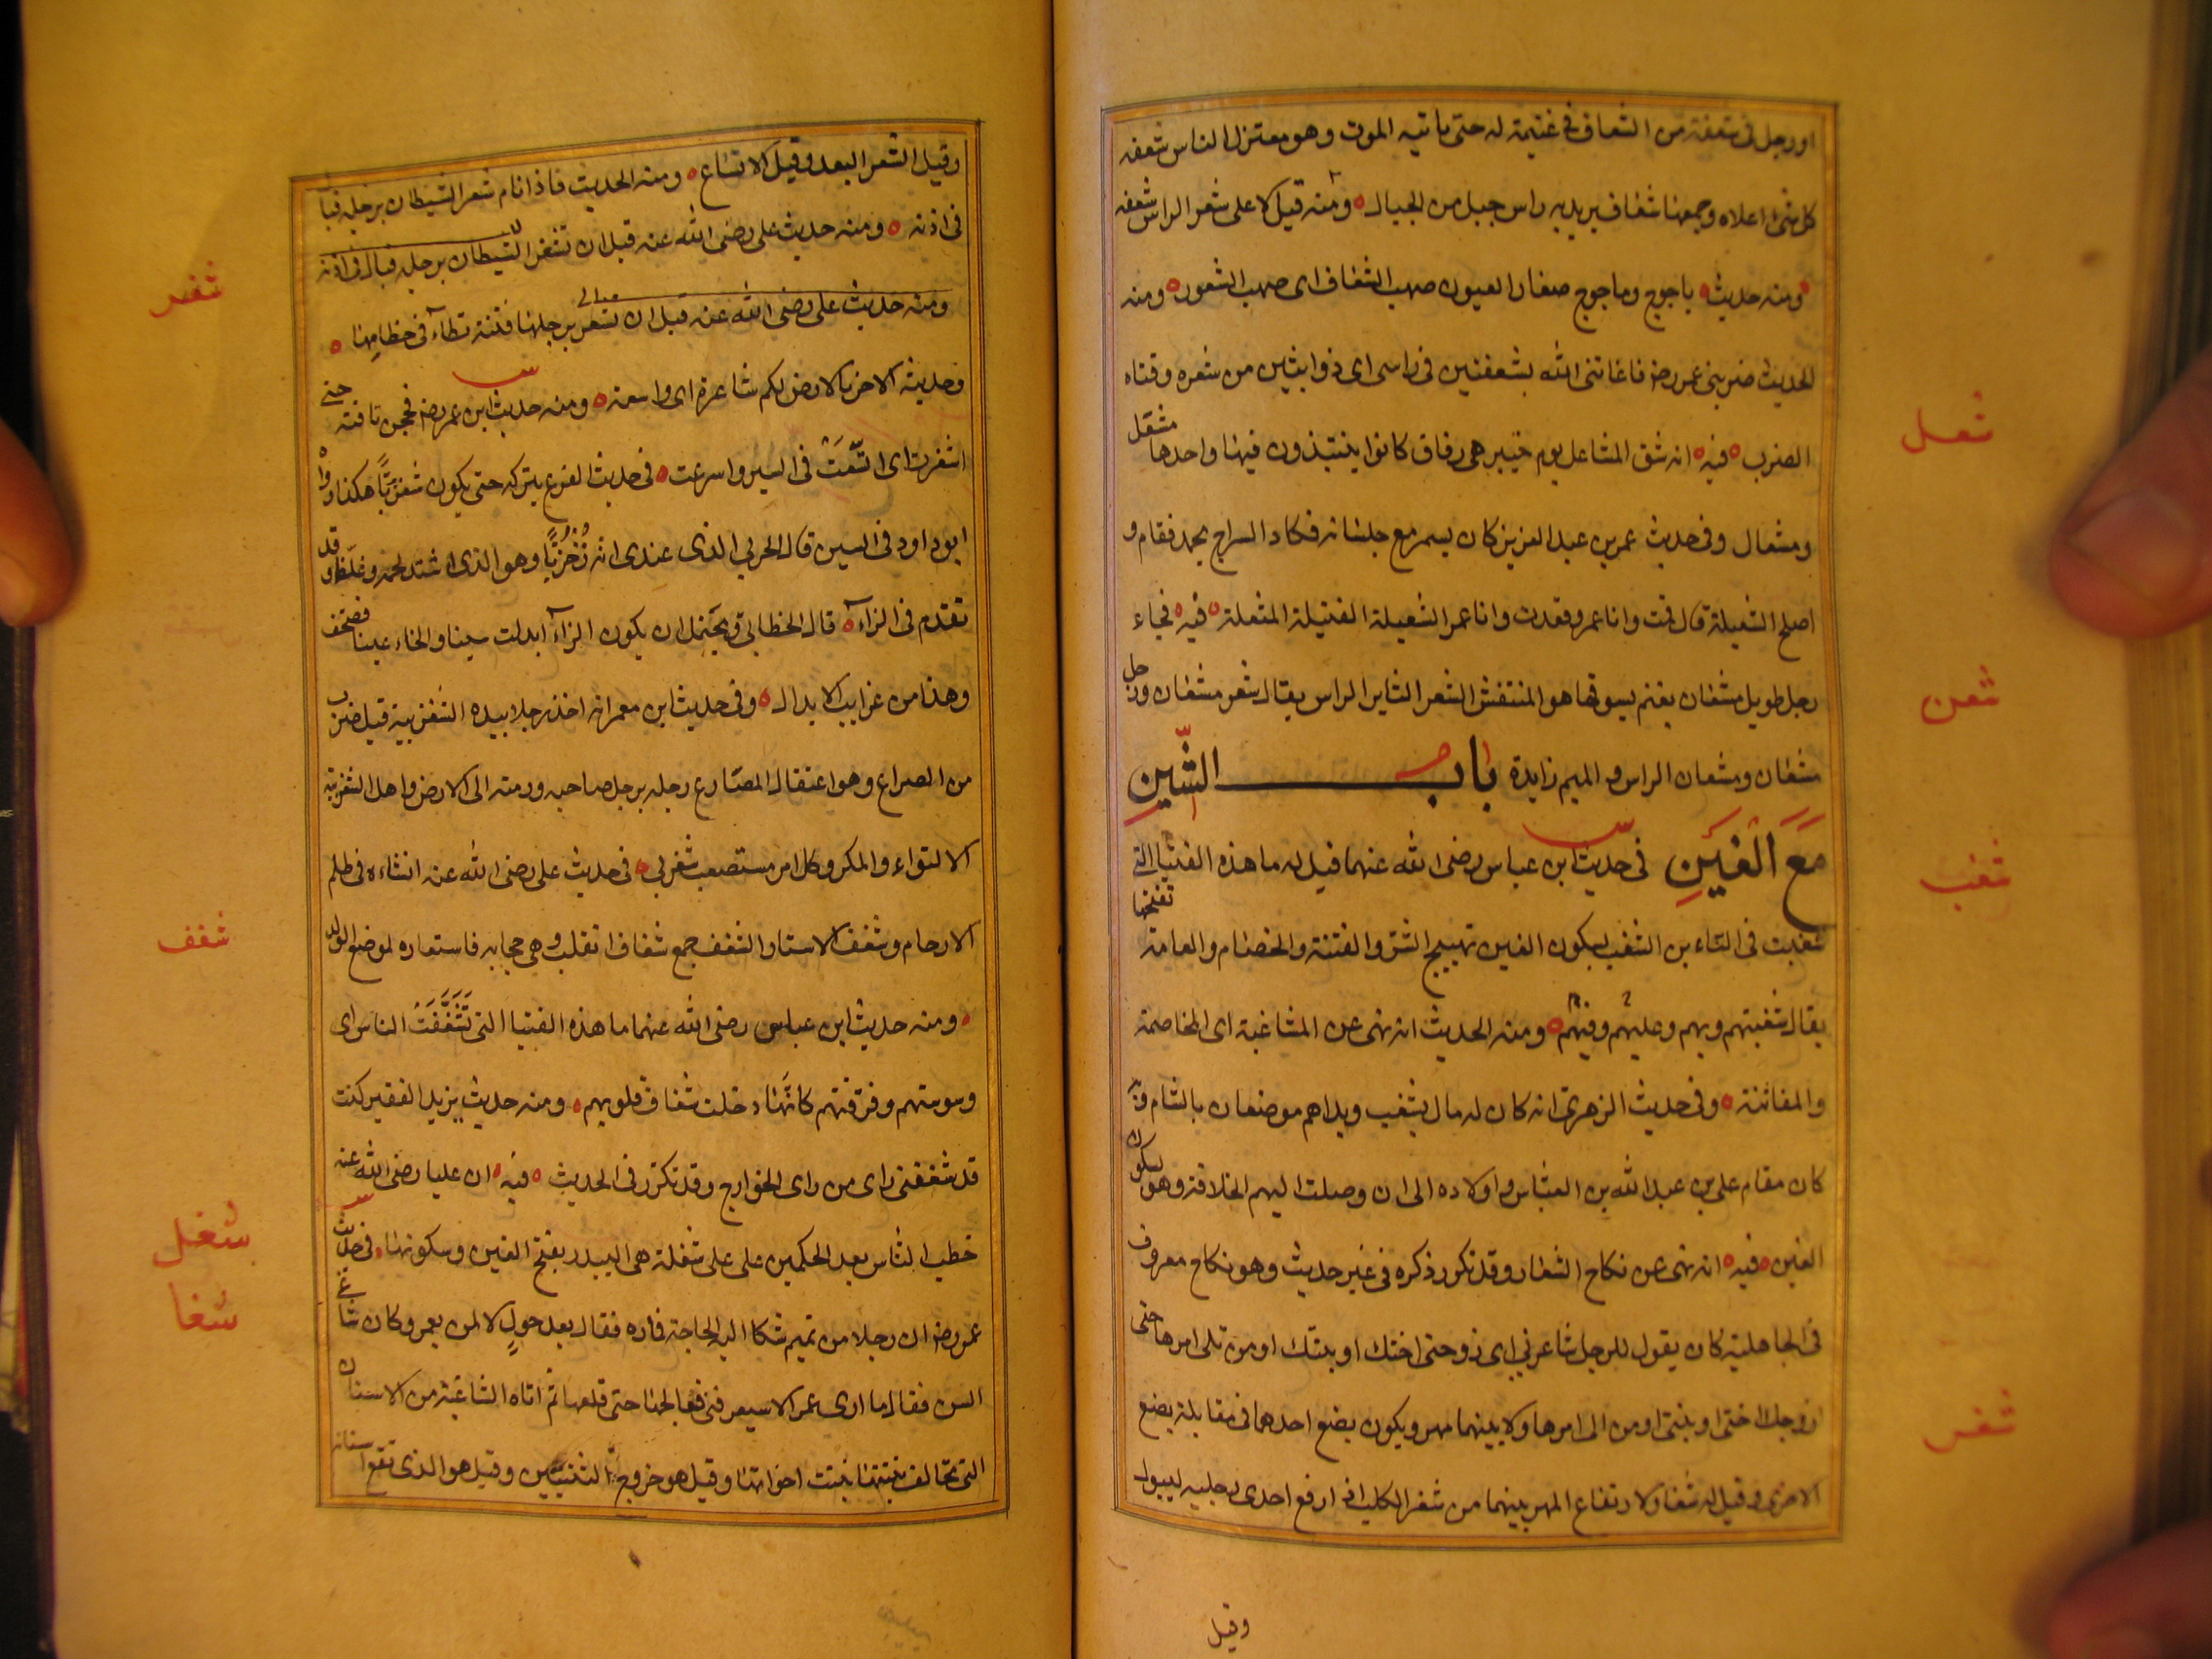 او رجل فى شعفة من الشعاف فى غنيمة له حتى ياتيه الموت وهو معتزل الناس شعفه
كل شئ اعلاه وجمعها شعاف يريد به راس جبل من الجبال ومنه قيل لاعلى شعر الراس شعفه
ومنه حديث ياجوج وماجوج صغار العيون صهب الشعاف اى صهب الشعور ومنه
الحديث ضربنى عمر رضه فاغاثنى الله بشعفتين فى راسى اى ذوابتين من شعره وقتاه
شعل
الضرب فيه انه شق المشاعل يوم خيبر هى زقاق كانوا ينتبذون فيها واحدها مشعل
ومشعال وفى حديث عمر بن عبد العزيز كان يسمر مع جلسائه فكاد السراج يخمد فقام و
اصلح الشعيلة قال قمت وانا عمر وقعدت وانا عمر الشعيلة الفتيلة المشعلة فيه فجاء
شعن
رجل طويل مشعان بغنم يسوقها هو المنتفش الشعر الثاير الراس يقال شعر مشعان ورجل
مشعان ومشعان الراس والميم زايدة باب الشّين
شغب
مَعَ الغَينِ فى حديث ابن عباس رضى الله عنهما قيل له ما هذه الفتيا التى
شغبت فى الناس الشغب بسكون الغين تهييج الشر والفتنة والخصام والعامة تفتحها
يقال شغبتهم وبهم وعليهم وفيهم ومنه الحديث انه نهى عن المشاغبة اى المخاصمة
والمفاتنة وفى حديث الزهرى انه كان له مال بشغب وبدا هم موضعان بالشام وبه
كان مقام على بن عبد الله بن العباس واولاده الى ان وصلت اليهم الخلافة وهو بسكون
الغين فيه انه نهى عن نكاح الشغار وقد تكرر ذكره فى غير حديث وهو نكاح معروف
فى الجاهلية كان يقول للرجل شاغرنى اى زوجنى اختك او بنتك او من تلى امرها حتى
شغر
ازوجك اختى او بنتى او من الى امرها ولا بينهما مهر ويكون بضع احدهما فى مقابلة بضع
الاخرى وقيل له شغار لارتفاع المهر بينهما من شغر الكلب اذا رفع احدى رجليه ليبول
وقيل
وقيل الشغر البعد وقيل الاتساع ومنه الحديث فاذا نام شغر الشيطان برجله فبا
فى اذنه ومنه حديث على رضى الله عنه قبل ان تشغر الشيطان برجله فبال فى اذنه
شغر
ومنه حديث على رضى الله عنه قبل ان تشغر برجلها فتنة تطاء فى خطامها
وحديثه الاخر بالارض لكم شاغرة اى واسعة ومنه حديث ابن عمر رضه فحجن ناقته حتى
اشغرت اى اتسعت فى السير واسرعت فى حديث الفرع يتركه حتى يكون شغزبًّا هكذا رواه
ابو داود فى السنن قال الحربى الذى عندى انه زُخْزُبًّا وهو الذى اشتد لحمه وغلظ وقد
تقدم فى الزاء قال الخطابى ويحتمل ان يكون الزاء ابدلت سينا والخاء غينا فصحف
وهذا من غرايب الابدال وفى حديث ابن معمر انه اخذ رجلا بيده الشغزبية قيل ضرب
من الصراع وهو اعتقال المصارع رجله برجل صاحبه ورمته الى الارض واصل الشغزبية
الالتواء والمكر وكل امر مستصعب شغزبى فى حديث على رضى الله عنه انشاءه فى ظلم
شغف
الارحام وشغف الاستار الشغف جمع شغاف القلب وهى حجابه فاستعاره لموضع الولد
ومنه حديث ابن عباس رضى الله عنهما ما هذه الفتيا التى تَشَغَّفَتْ الناس اى
وسوستهم وفرقتهم كانها دخلت شغاف قلوبهم ومنه حديث يزيد الفقير كنت
قد شغفنى راى من راى الخوارج وقد تكرر فى الحديث فيه ان عليا رضى الله عنه
شغل
خطب الناس بعد الحكمين على على شغلة هى البيدر بفتح الغين وسكونها فى حديث
شغا
عمر رضه ان رجلا من تميم شكا اليه الحاجة فماره فقال بعد حولٍ لالمن بعمر وكان شاغى
السن فقال ما ارى عمر الا سيعرفنى فعالجها حتى قلعها ثم اتاه الشاغية من الاسنان
التى تخالف نبتتها نبتت اخواتها وقيل هو خروج الثنيتين وقيل هو الذى تقع اسنانه